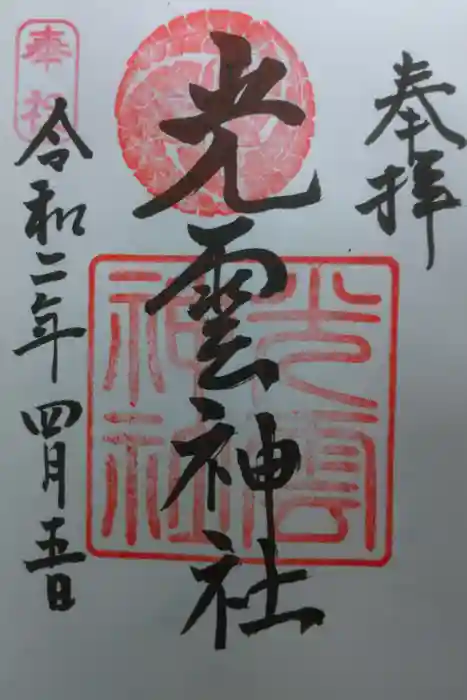 奉拝
光雲神社
光雲
神社
令和二年四月五日
奉祝